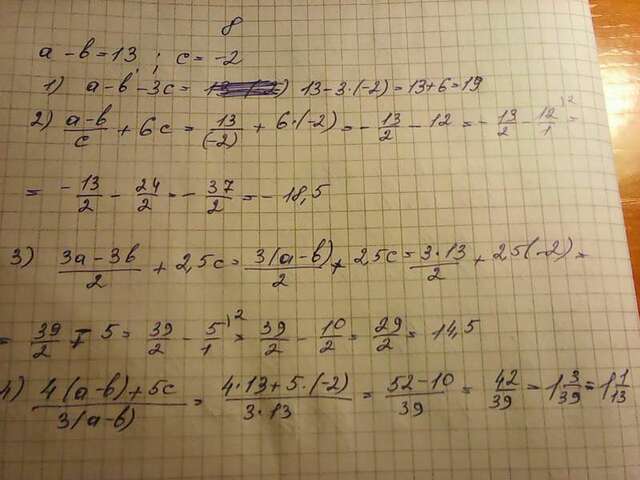 8
a - b = 13 ; c = -2
1) a - b - 3c = 13 - 3·(-2) = 13 + 6 = 19
2) (a-b)/c + 6c = 13/(-2) + 6·(-2) = - 13/2 - 12 = - 13/2 - 12/1 )² =
= - 13/2 - 24/2 = - 37/2 = - 18,5
3) (3a - 3b)/2 + 2,5c = 3(a-b)/2 + 2,5c = 3·13/2 + 2,5(-2) =
= 39/2 - 5 = 39/2 - 5/1 )² = 39/2 - 10/2 = 29/2 = 14,5
4) (4(a-b)+5c)/(3(a-b)) = (4·13+5·(-2))/(3·13) = (52-10)/39 = 42/39 = 1 3/39 = 1 1/13